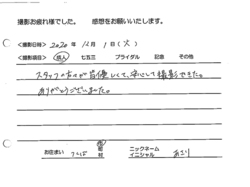 撮影お疲れ様でした。 感想をお願いいたします。
<撮影日時> 2020 年 12 月 1 日 (火)
<撮影項目> 成人 七五三 ブライダル 記念 その他
スタッフの方が皆優しくて、安心して撮影できました。
ありがとうございました。
お住まい つくば 市 ニックネーム
イニシャル あかり